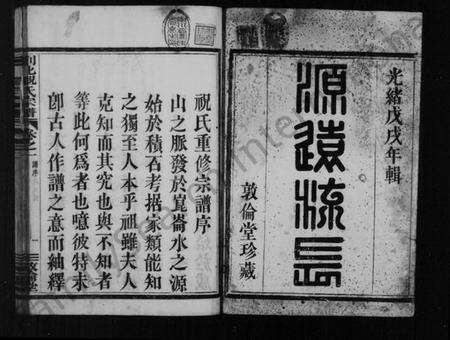 光緒戊戌年輯
源遠流長
敦倫堂珍藏
祝氏重修宗譜序
山之脈發於崑崙水之源
始於積石考据家類能知
之獨至人本乎祖雖夫人
克知而其究也與不知者
等此何為者也噫彼特未
卽古人作譜之意而紬繹
祝氏宗譜 卷之一 譜序 一